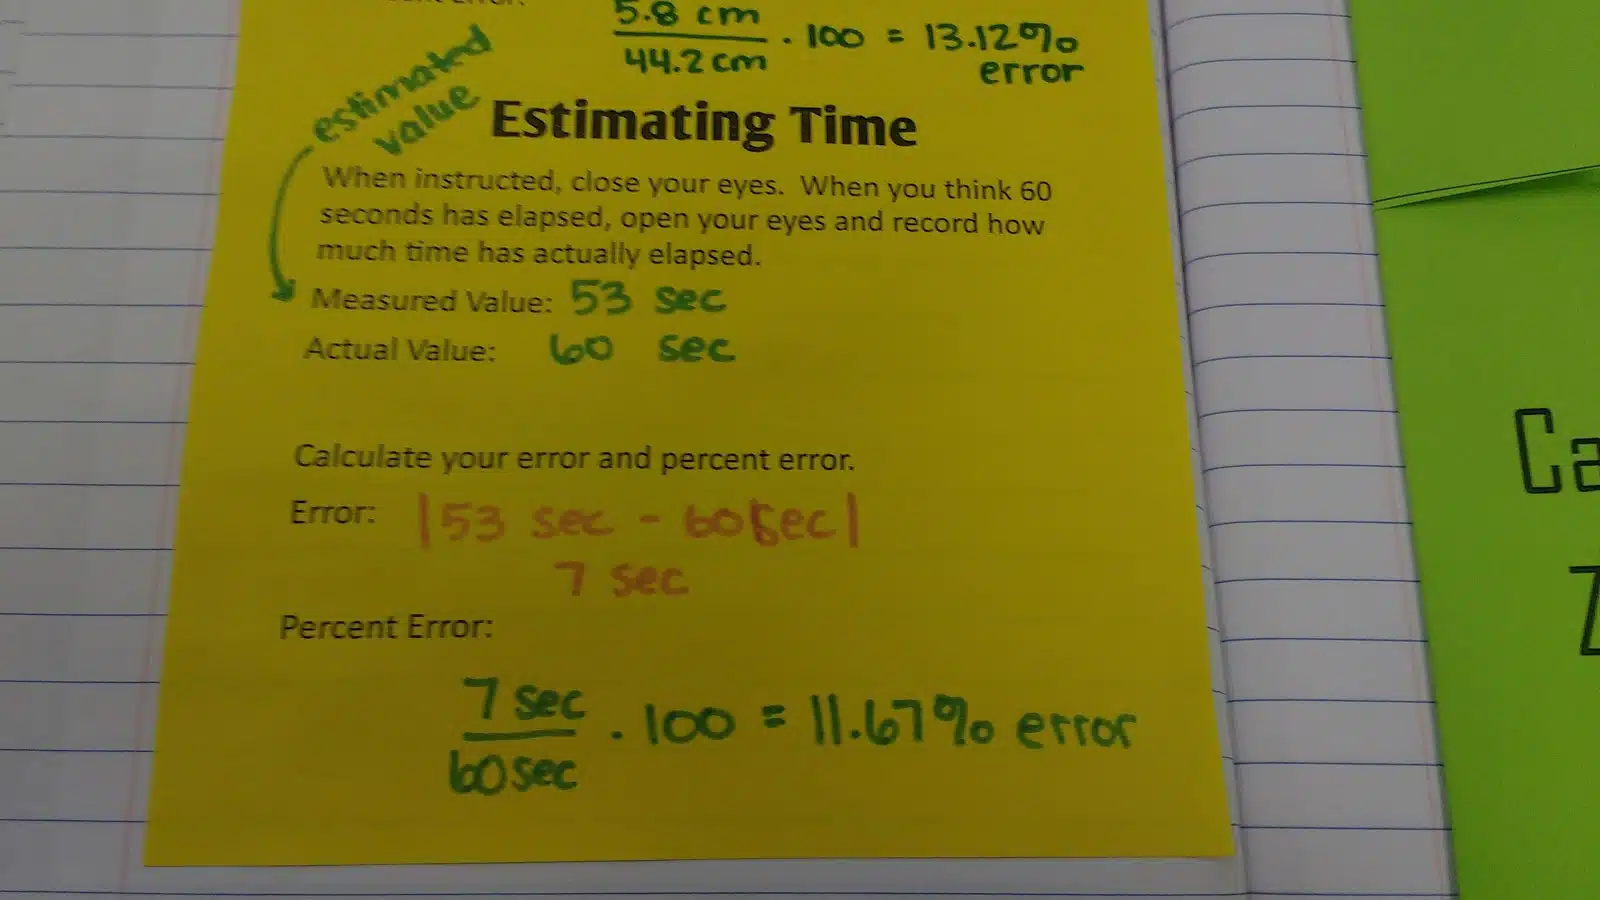 5.8 cm
44.2 cm · 100 = 13.12%
error
estimated
value
Estimating Time
When instructed, close your eyes. When you think 60
seconds has elapsed, open your eyes and record how
much time has actually elapsed.
Measured Value: 53 sec
Actual Value: 60 sec
Calculate your error and percent error.
Error: |53 sec - 60 sec|
7 sec
Percent Error:
7 sec
60 sec · 100 = 11.67% error
Ca